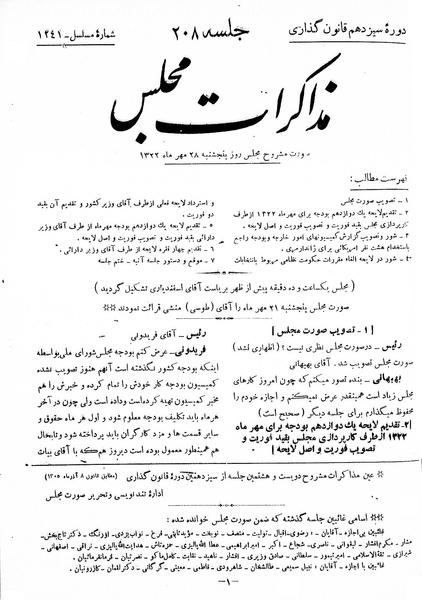 دورهٔ سیزدهم قانون گذاری
جلسه ۲۰۸
شمارهٔ مسلسل - ۱۲۴۱
مذاکرات مجلس
صورت مشروح مجلس روز پنجشنبه ۲۸ مهر ماه ۱۳۲۲
فهرست مطالب :
۱ - تصویب صورت مجلس
۲ - تقدیم لایحه یک دوازدهم بودجه برای مهر ماه ۱۳۲۲ از طرف
کارپردازی مجلس بقید فوریت و تصویب فوریت و اصل لایحه .
۳ - شور و تصویب گزارش کمیسیونهای امور خارجه و بودجه راجع
باستخدام هشت نفر آمریکائی برای ژاندارمری .
۴ - شور در لایحه الغاء مقررات حکومت نظامی مربوط بانتخابات
و استرداد لایحه فعلی از طرف آقای وزیر کشور و تقدیم آن بقید
دو فوریت .
۵ - تقدیم لایحه یک دوازدهم بودجه مهر ماه از طرف آقای وزیر
دارائی بقید فوریت و تصویب فوریت و اصل لایحه .
۶ - تقدیم چهار فقره لایحه از طرف آقای وزیر دارائی .
۷ - موقع و دستور جلسه آتیه - ختم جلسه
( مجلس یکساعت و ده دقیقه پیش از ظهر بریاست آقای اسفندیاری تشکیل گردید )
صورت مجلس پنجشنبه ۲۱ مهر ماه را آقای (طوسی) منشی قرائت نمودند
[ ۱ - تصویب صورت مجلس ]
رئیس - در صورت مجلس نظری نیست ؟ ( اظهاری نشد )
صورت مجلس تصویب شد . آقای بهبهانی
بهبهانی - بنده تصور میکنم که چون امروز کارهای
زیاد است همینقدر عرض نمیکنم و اجازه خودم را
محفوظ میگذارم برای جلسه دیگر ( صحیح است )
[۲ - تقدیم لایحه یک دوازدهم بودجه برای مهر ماه
۱۳۲۲ از طرف کارپردازی مجلس بقید فوریت و
تصویب فوریت و اصل لایحه ]
رئیس - آقای فریدونی
فریدونی - عرض کنم بودجه مجلس شورای ملی بواسطه
اینکه بودجه کشور نگذشته است آنهم هنوز تصویب نشده
کمیسیون بودجه کار خودش را تمام کرده و خبرش را هم
مخبر کمیسیون تهیه کرده است و داده است ولی چون در آخر
هر ماه باید تکلیف بودجه معلوم شود و اول هر ماه حقوق و
سایر قسمت ها و مزد کارگران باید پرداخته شود و تا بحال
هم همینطور معمول بوده است دیروز هم که با آقای بیات
* عین مذاکرات مشروح دویست و هشتمین جلسه از سیزدهمین دورهٔ قانون گذاری (مطابق قانون ۸ آذرماه ۱۳۰۵)
ادارهٔ تندنویسی و تحریر صورت مجلس
** اسامی غائبین جلسه گذشته که ضمن صورت مجلس خوانده شده :
غائبین بی اجازه - آقایان : رضوی - اقبال - تولیت - منصف - نوبخت - مؤید ثابتی - فرخ - نواب یزدی - اورنگ - دکتر تاج بخش -
مشار - مکرم افشار - لیقوانی - ناصری - شجاع - اکبر - امیر ابراهیمی - عطا الله پالیزی - حمزه تاش - هدایت الله پالیزی - نراقی - اصفهانی -
شیرازی - ثقة الاسلامی - امیر تیمور - سلطانی - صادق وزیری - افشار - ناهید - معدل - نصرتیان - فرمانفرمائیان .
غائبین با اجازه - آقایان : نبیل سمیعی - طالشخان - شاهرودی - فاطمی - معینی - گرگانی - دکتر ادهم - کازرونیان .
-۱-